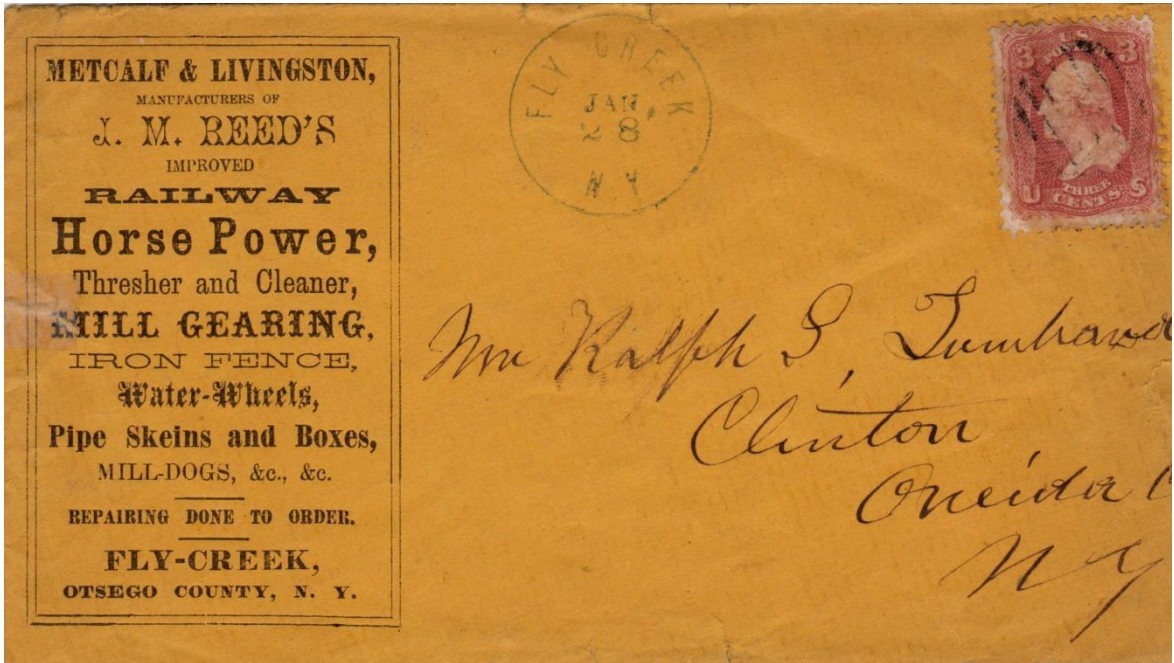 METCALF & LIVINGSTON,
MANUFACTURERS OF
J. M. REED'S
IMPROVED
RAILWAY
Horse Power,
Thresher and Cleaner,
MILL GEARING,
IRON FENCE,
Water-Wheels,
Pipe Skeins and Boxes,
MILL-DOGS, &c., &c.
REPAIRING DONE TO ORDER.
FLY-CREEK,
OTSEGO COUNTY, N. Y.
FLY CREEK
JAN
28
N.Y
3 3
U THREE S
CENTS
Ralph S,
Clinton
Oneida
N Y